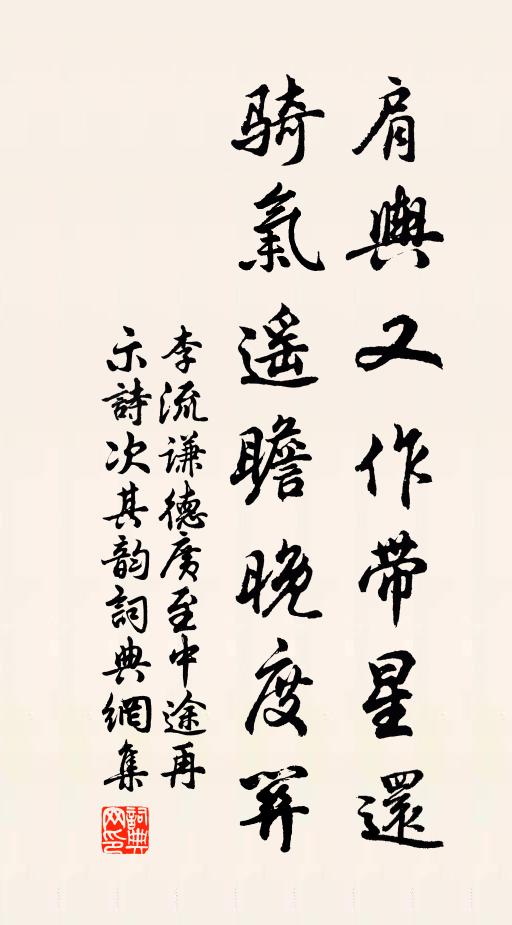 肩輿又作帶星還
騎氣遥瞻晚度關
李流谦德廣至中途再
示詩次其韵詞典網集
詞典网印